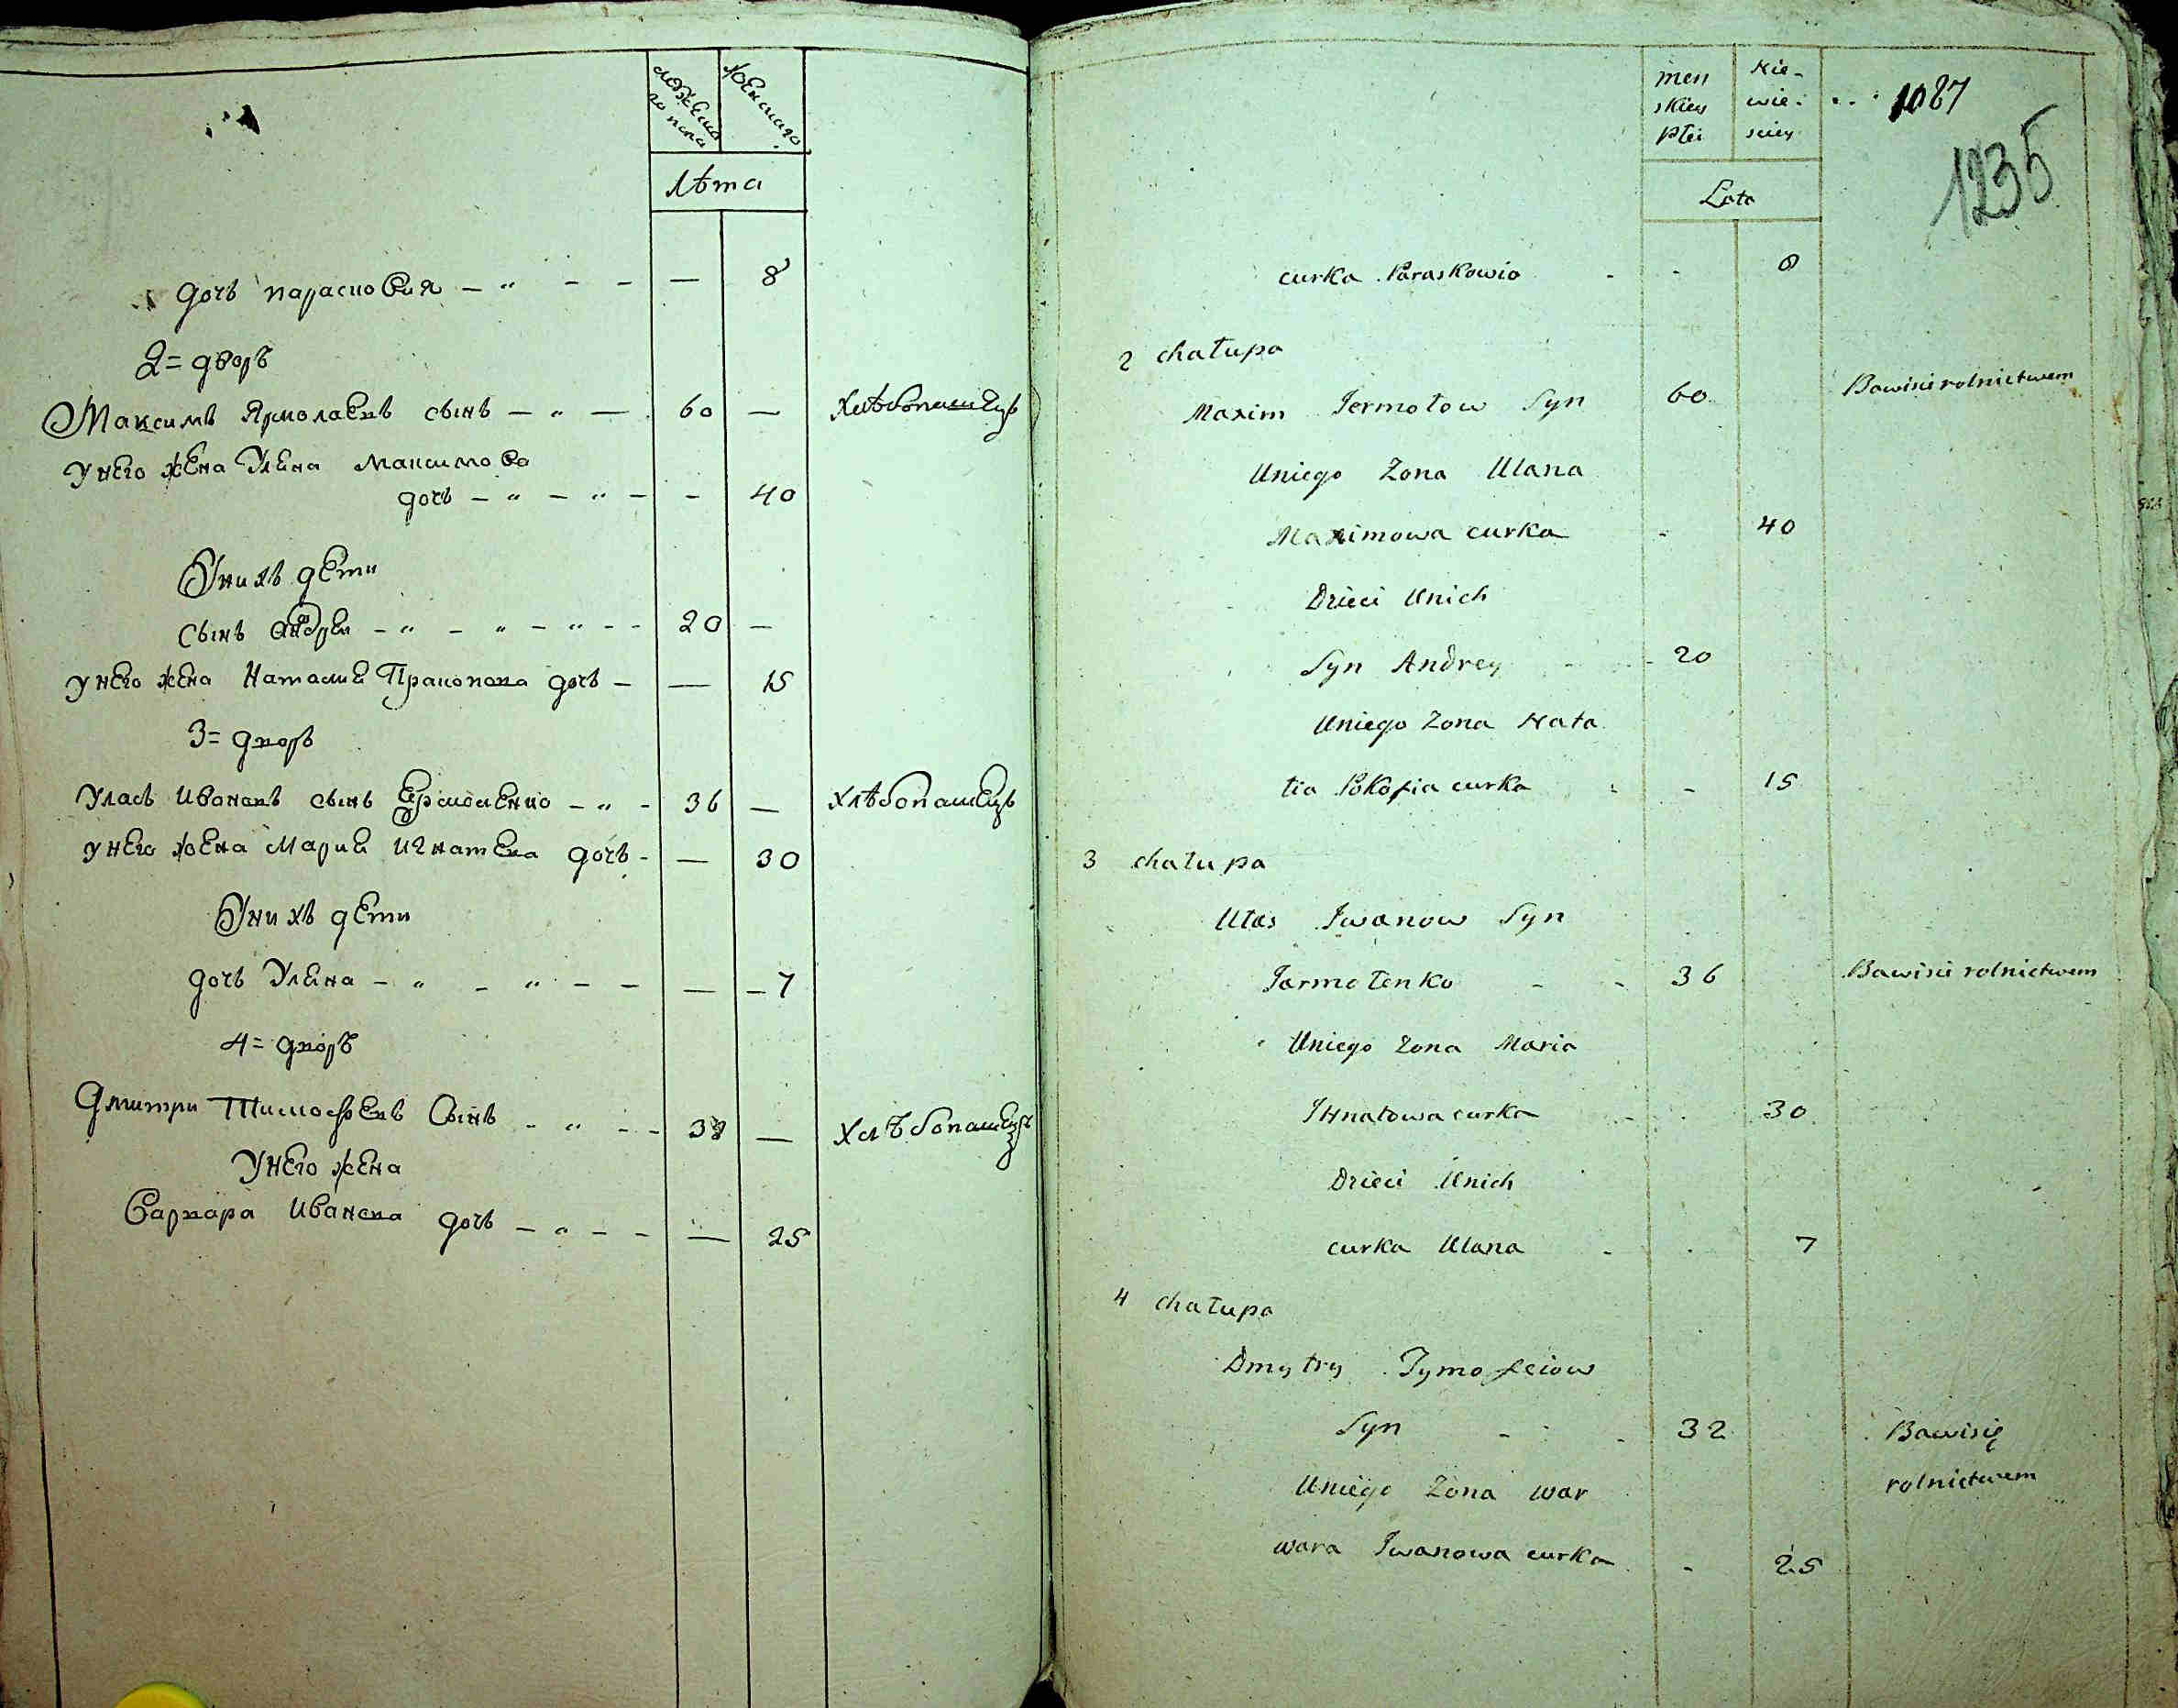 мужеска
го пола
женскаго
лѣта
дочь парасковия — „ - - — 8
2 = дворъ
Максимъ Ярмолаевъ сынъ — „ — 60 — Хлѣбопашецъ
у него жена Улена Максимова
дочь — „ — „ — - 40
У нихъ дети
сынъ андрей - „ - „ - „ - - 20 —
у него жена Наталиѣ Пракопова дочь — — 15
3 = дворъ
Уласъ Ивановъ сынъ Ермоленко — „ - 36 — хлѣбопашецъ
у него жена Мариѣ игнатева дочь - — 30
У нихъ дети
дочь Улена - „ - „ - - — — 7
4 = дворъ
Дмитри Тимофѣевъ Сынъ - „ - - 32 — хлѣбопашецъ
У него жена
Варвара Иванова дочь — „ - - — 25
men
skiey
Płci
Nie-
wie-
sciey
1087
1235
Lata
curka Paraskowia - - 8
2 chałupa
Maxim Jermołow Syn 60 Bawisie rolnictwem
Uniego Zona Ulana
Maximowa curka - 40
Dzieci Unich
Syn Andrey - - 20
Uniego Zona Nata
lia Pokofia curka - - 15
3 chałupa
Ułas Jwanow Syn
Jarmołenko - - 36 Bawisie rolnictwem
Uniego Zona Maria
JHnatowa curka - 30
Dzieci Unich
curka Ulana - - 7
4 chałupa
Dmytry Tymofeiow
Syn - - 32 Bawisię
Uniego Zona War rolnictwem
wara Jwanowa curka - 25